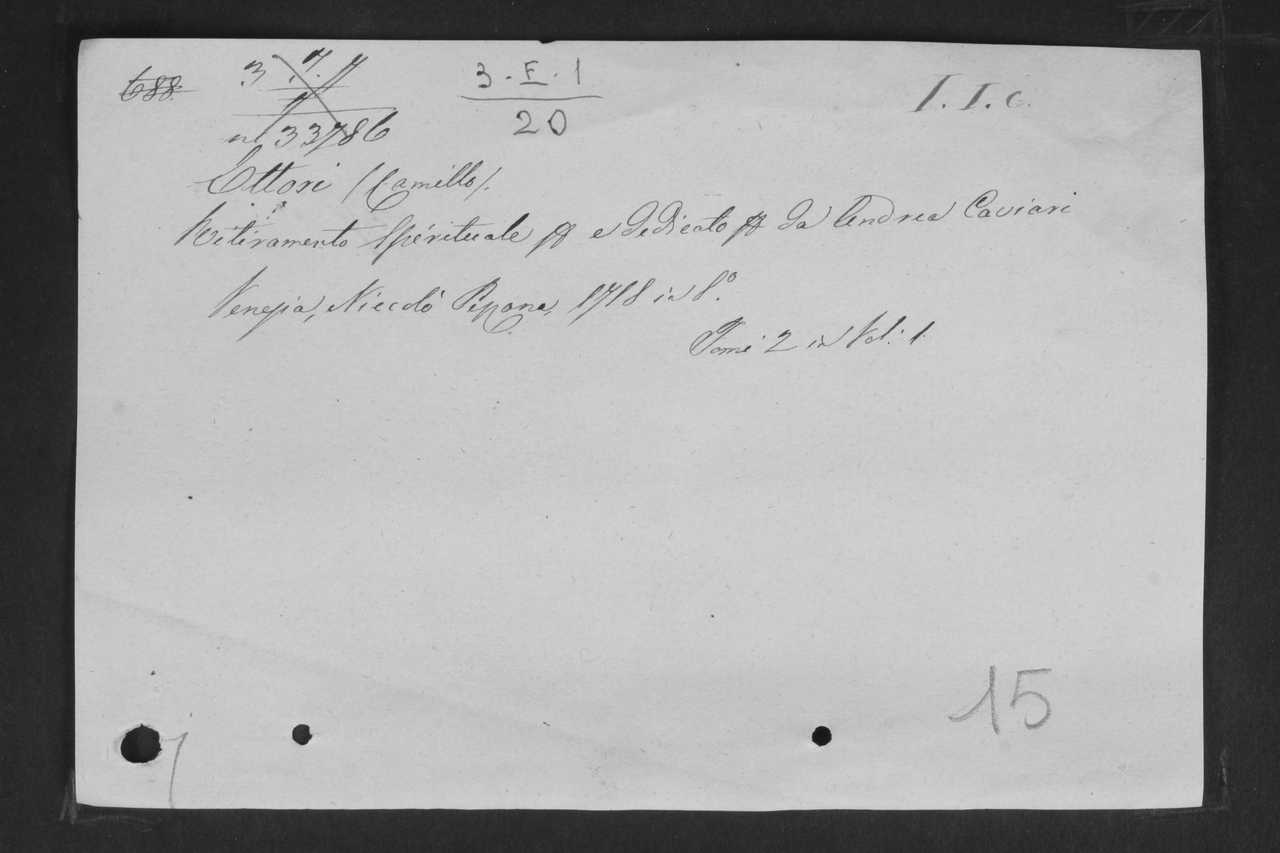 688
3 . 7 . 7
n 33786
3 . E . 1
20
I. I. c.
Ettori (Camillo).
Ritiramento Spirituale e dedicato da Andrea Caviari
Venezia, Niccolò Pezzana, 1718 in 8.º
Tomi 2 in Vol: 1.
15